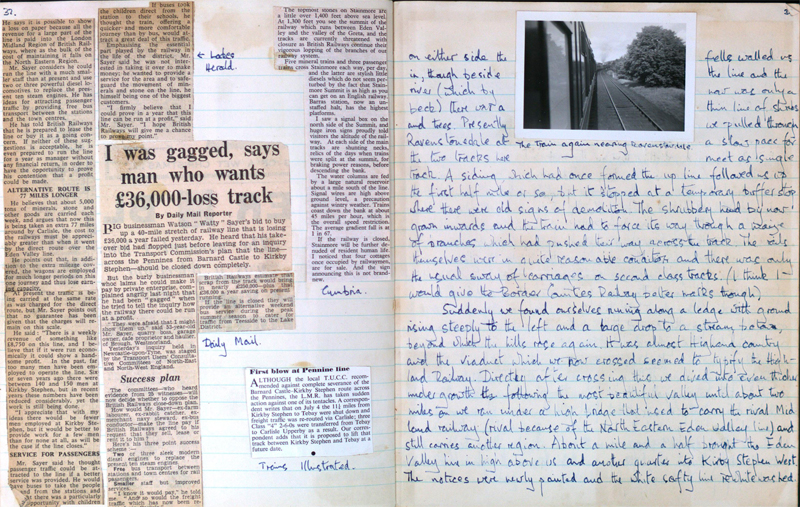 32.
He says it is possible to
show a loss on paper because all the
revenue for a large part of the
line is paid into the London
Midland Region of British Rail-
ways, where as the bulk of the
cost of maintaining it falls on
the North Eastern Region.
Mr. Sayer considers he could
run the line with a much small-
er staff than at present and use
two or three powerful diesel lo-
comotives to replace the pres-
ent ten steam engines. He has
ideas for attracting passenger
traffic by providing free bus
transport between the stations
and the town centres.
He has told British Railways
that he is prepared to lease the
line or buy it as a going con-
cern. If neither of these sug-
gestions is acceptable, he is
prepared to run the line
for a year as manager without
any financial return, in order to
have the opportunity to prove
his contention that a profit
could be made.
ALTERNATIVE ROUTE IS
77 MILES LONGER
He believes that about 5,000
tons of minerals, stone and
other goods are carried each
week, and argues that now this
is being taken an extra 77 miles
around by Carlisle, the cost to
the railways must be appreci-
ably greater than when it went
by the direct route over the
Eden Valley line.
He points out that, in addi-
tion to the extra mileage cov-
ered, the wagons are employed
for much longer periods on this
one journey and thus lose earn-
ing capacity.
At present the traffic is be-
ing carried at the same rate
as was charged for the direct
route, but Mr. Sayer points out
that no guarantee has been
given that the charges will re-
main on this scale.
He said: "There is a weekly
revenue of something like
£8,750 on this line, and I be-
lieve that if it were run econo-
mically it could show a hand-
some profit. In the past, far
too many men have been em-
ployed to operate the line. Six
or seven years ago there were
between 140 and 150 men at
Kirkby Stephen, but in recent
years these numbers have been
reduced considerably, yet the
work is still being done.
"I appreciate that with my
ideas there would be fewer
men employed at Kirkby Ste-
phen, but it would be better to
provide work for a few men
than for none at all, as will be
the case if the line closes."
SERVICE FOR PASSENGERS
Mr. Sayer said he thought
passenger traffic could be at-
tracted to the line if a proper
service was provided. He would
have buses to take the people
to and from the stations, and
that there was a particularly
opportunity with children
If buses took
the children direct from the
station to their schools, he
thought the train, offering a
quicker and more comfortable
journey than by bus, would at-
tract a great deal of this traffic.
Emphasising the essential
part played by the railway in
the life of the district, Mr.
Sayer said he was not inter-
ested in taking it over to make
money; he wanted to provide a
service for the area and to safe-
guard the movement of min-
erals and stone on the line, he
himself being one of the biggest
customers.
"I firmly believe that I
could prove in a year that this
line can be run at a profit" said
Mr. Sayer, "I hope British
Railways will give me a chance
to prove my point."
← Lakes
Herald.
I was gagged, says
man who wants
£36,000-loss track
By Daily Mail Reporter
BIG businessman Watson "Watty" Sayer's bid to buy
up a 40-mile stretch of railway line that is losing
£36,000 a year failed yesterday. He heard that his take-
over bid had flopped just before leaving for an inquiry
into the Transport Commission's plan that the line—
across the Pennines from Barnard Castle to Kirkby
Stephen—should be closed down completely.
But the burly businessman
who claims he could make it
pay by private enterprise, com-
plained angrily last night that
he had been "gagged" when
he tried to tell the inquiry how
the railway could be run at a
profit.
Success plan
The committee—who heard
evidence from 39 witnesses—will
now decide whether to oppose the
British Railways close-down plan.
How would Mr. Sayer
Here's his three point success
scheme:—
Two or three sleek modern
diesel engines to replace the
present ten steam engines.
Free bus transport between
stations and town centres for rail
passengers.
Smaller staff but improved
services.
"I know it would pay," he told
me.
Daily Mail.
The topmost stones on Stainmore are
a little over 1,400 feet above sea level.
At 1,300 feet you see the summit of the
railway which runs between Eden Val-
ley and the valley of the Greta, and the
tracks are currently threatened with
closure as British Railways continue their
vigorous lopping of the branches of our
railway system.
Five mineral trains and three passenger
trains cross Stainmore each way, per day,
and the latter are stylish little
diesels which do not seem per-
turbed by the fact that Stain-
more Summit is as high as you
can get on an English railway.
Barras station, now an un-
staffed halt, has the highest
platforms.
I saw a signal box on the
north side of the Summit, and
huge iron signs proudly told
visitors the altitude of the rail-
way. At each side of the main
tracks are shunting necks,
relics of the days when trains
were split at the summit, for
braking power reasons, before
descending the bank.
The water columns are fed
by a large natural reservoir
about a mile south of the line.
Signal wires are high above
ground level, a precaution
against wintry weather. Trains
coast down the bank at about
45 miles per hour, which is
the overall speed restriction.
The average gradient fall is at
1 in 67.
If the railway is closed,
Stainmore will be further de-
nuded of resident human life.
I noticed that four cottages
once occupied by railwaymen,
are for sale. And the sign
announcing this is not brand-
new.
Cumbria.
First blow at Pennine line
ALTHOUGH the local T.U.C.C. recom-
mended against complete severance of the
Barnard Castle-Kirkby Stephen route across
the Pennines, the L.M.R. has taken sudden
action against one of its tentacles. A correspon-
dent writes that on July 4 the 11½ miles from
Kirkby Stephen to Tebay were shut down and
freight traffic was re-routed via Carlisle; three
Class "4" 2-6-0s were transferred from Tebay
to Carlisle Upperby as a result. Our corre-
spondent adds that it is proposed to lift the
track between Kirkby Stephen and Tebay at a
future date.
Trains Illustrated.
2.
on either side the fells walled us
in, though beside the line and the
river (which by now was only a
beck) there was a thin line of stones
and trees. Presently we spilled through
Ravenstonedale at a slow pace for
The train again nearing Ravenstonedale
the two tracks here meet as single
track. A siding which had once formed the up line followed us up
the first half mile or so, but it stopped at a temporary buffer stop
where there were old signs of demolition. The shrubbery head by now
grown inwards and the train had to force its way through a maze
of branches which had pushed their way across the track. The rails
themselves were in quite reasonable condition and there was only
the usual sway of carriages on second class tracks. (I think I
would give the Border Counties Railway poorer marks though).
Suddenly we found ourselves running along a ledge with ground
rising steeply to the left and a large drop to a stream below,
beyond what the hills rose again. It was almost Highland country
and the viaduct which we now crossed seemed to typify the High-
land Railway. Directly after crossing this we dived into even thicker
undergrowth following the most beautiful valley until about two
miles on we ran under a high bridge that used to carry the rival Mid
land railway (rival because of the North Eastern Eden Valley line) and
still carries another region. About a mile and a half brought the Eden
Valley line in high above us and another quarter into Kirkby Stephen West.
The notices were newly painted and the white safty line rewhitewashed.